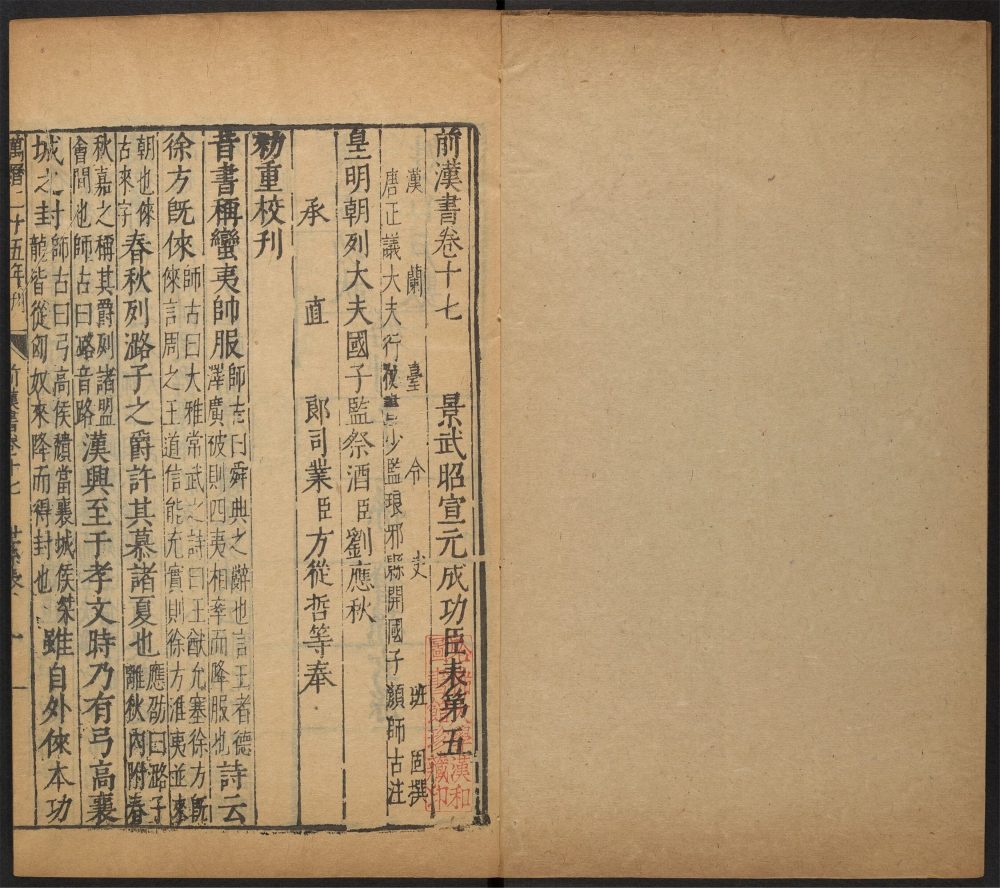 前漢書卷十七 景武昭宣元成功臣表第五
漢蘭臺令史班固撰
唐正議大夫行祕書少監琅邪縣開國子顏師古注
皇明朝列大夫國子監祭酒臣劉應秋
承直郎司業臣方從哲等奉
勑重校刊
昔書稱蠻夷帥服師古曰舜典之辭也言王者德澤廣被則四夷相率而降服也詩云
徐方既倈師古曰大雅常武之詩曰王猷允塞徐方既倈言周之王道信能充實則徐方淮夷並來
朝也倈古來字春秋列潞子之爵許其慕諸夏也應劭曰潞子離狄內附春
秋嘉之稱其爵列諸盟會間也師古曰潞音路漢興至于孝文時乃有弓高襄
城之封師古曰弓高侯穨當襄城侯桀龍皆從匈奴來降而得封也雖自外倈本功
萬曆二十五年刊 前漢書卷十七
哈佛大學漢和圖書館珍藏印